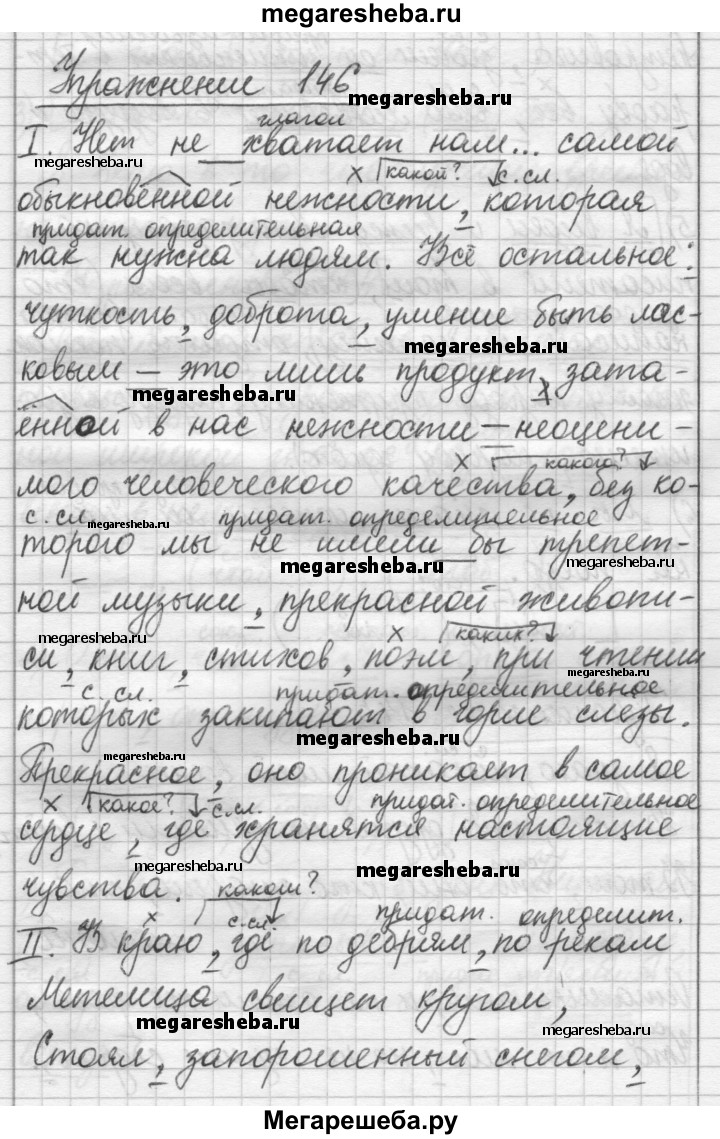 megaresheba.ru
Упражнение 146
megaresheba.ru
глагол
I. Нет не хватает нам... самой
megaresheba.ru
х какой? с.сл.
обыкновенной нежности, которая
придат. определительная
так нужна людям. Всё остальное:
чуткость, доброта, умение быть лас-
megaresheba.ru
ковым – это лишь продукт зата-
megaresheba.ru
х
ённой в нас нежности – неоцени-
х какого?
мого человеческого качества, без ко-
с.сл. megaresheba.ru придат. определительное
торого мы не имели бы трепет-
megaresheba.ru megaresheba.ru
ной музыки, прекрасной живопи-
megaresheba.ru х каких?
си, книг, стихов, поэм, при чтении
megaresheba.ru
с.сл. придат. определительное
которых закипают в горле слезы.
megaresheba.ru
Прекрасное, оно проникает в самое
megaresheba.ru
х какое? с.сл. придат. определительное
сердце, где хранятся настоящие
megaresheba.ru megaresheba.ru
чувства. каком?
х с.сл. придат. определит.
II. В краю, где по дебрям, по рекам
Метелица свищет кругом,
megaresheba.ru megaresheba.ru
Стоял, запорошенный снегом,
Мегарешеба.ру